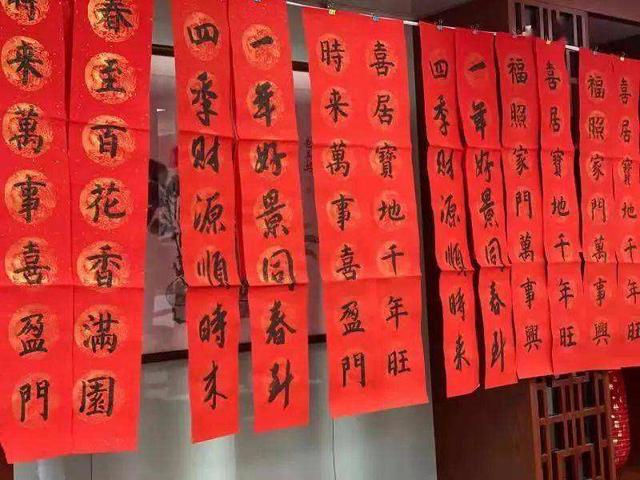 喜居寶地千年旺
福照家門萬事興
喜居寶地千年旺
福照家門萬事興
一年好景同春到
四季財源順時来
喜居寶地千年旺
時來萬事喜盈門
一年好景同春到
四季財源順時来
春至百花香滿園
時來萬事喜盈門